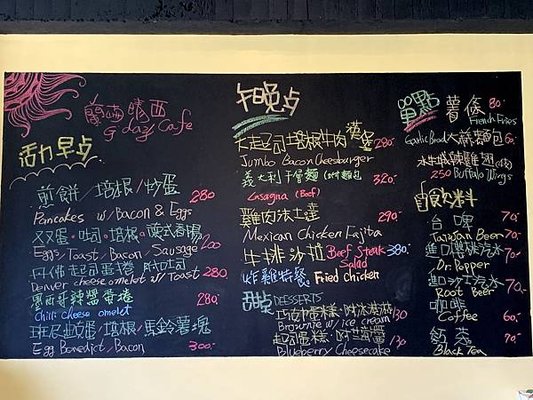 蘭嶼 西
G'day Cafe
活力早点
煎餅/培根/炒蛋 280
Pancakes w/Bacon & Eggs
双蛋·吐司·培根·德式香腸 200
Eggs/Toast/Bacon/Sausage
丹佛起司蛋捲 附吐司
Denver cheese omelet w/Toast 280
墨西哥辣醬蛋捲 280
Chili cheese omelet
班尼迪蛋/培根/馬鈴薯塊
Egg Benedict/Bacon 300
午晚点
大起司培根牛肉漢堡 280
Jumbo Bacon Cheesburger
義大利千層麵 320
Lasagna (Beef)
雞肉法士達 290
Mexican Chicken Fajita
牛排沙拉 Beef Steak Salad 380
炸雞特餐 Fried Chicken
甜點 DESSERTS
巧克力蛋糕 130
Brownie w/ice cream
起司蛋糕 130
Blueberry Cheesecake
單點 薯條 80
French Fries
Garlic Bread 大蒜麵包 60
水牛城辣雞翅
250 Buffalo Wings
飲料
台啤 70
Taiwan Beer
70
Dr. Pepper
進口沙士 70
Root Beer
咖啡
Coffee 60
紅茶 70
Black Tea